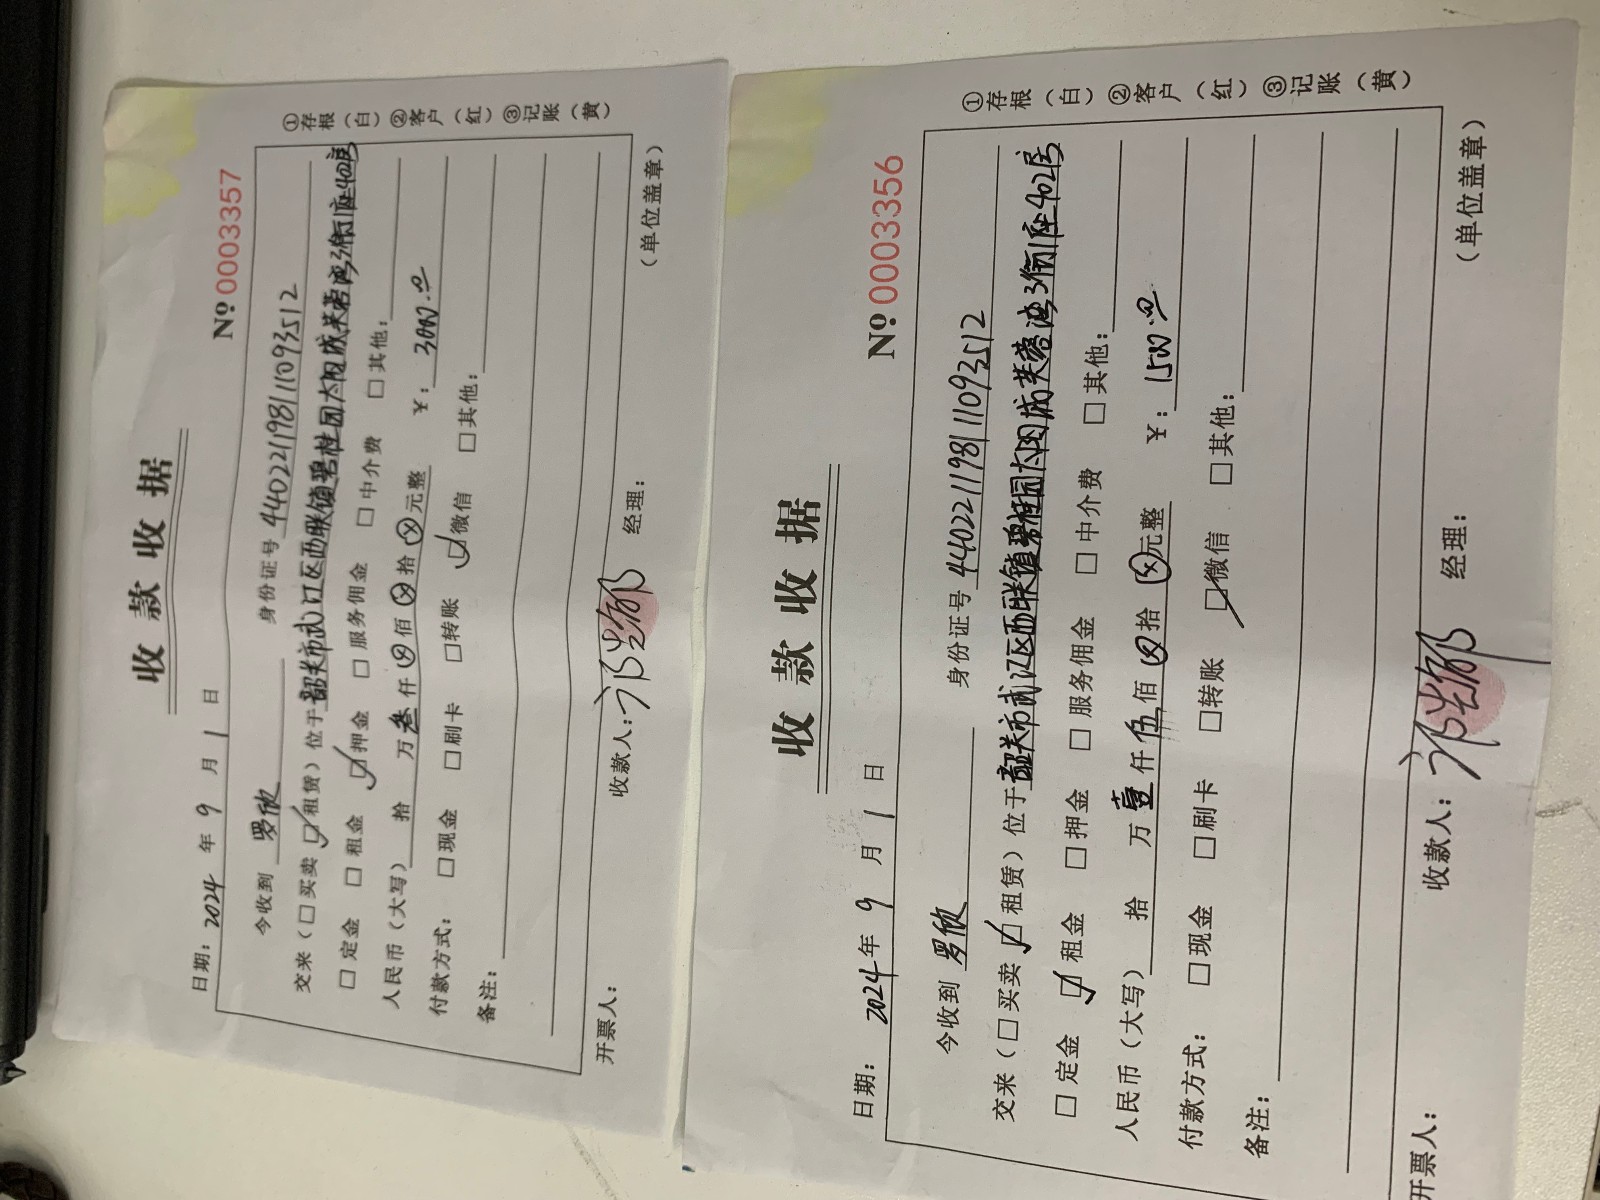 收款收据
№ 0003357
日期: 2024 年 9 月 1 日
今收到 罗欣 身份证号 440221198111093512
交来(□买卖 ☑租赁)位于韶关市武江区西联镇碧桂园太阳城芙蓉湾3街1座402房
□定金 □租金 ☑押金 □服务佣金 □中介费 □其他:
人民币(大写) 拾 万叁仟⊗佰⊗拾⊗元整 ¥: 3000.00
付款方式: □现金 □刷卡 □转账 ☑微信 □其他:
备注:
开票人: 收款人: 经理: (单位盖章)
①存根(白)②客户(红)③记账(黄)
收款收据
№ 0003356
日期: 2024年 9 月 1 日
今收到 罗欣 身份证号 440221198111093512
交来(□买卖 ☑租赁)位于韶关市武江区西联镇碧桂园太阳城芙蓉湾3街1座402房
□定金 ☑租金 □押金 □服务佣金 □中介费 □其他:
人民币(大写) 拾 万壹仟伍佰⊗拾⊗元整 ¥: 1500.00
付款方式: □现金 □刷卡 □转账 ☑微信 □其他:
备注:
开票人: 收款人: 经理: (单位盖章)
①存根(白)②客户(红)③记账(黄)